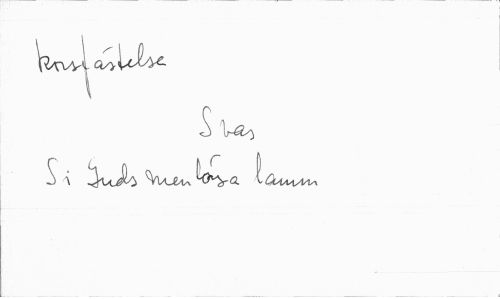 korsfästelse
Svas
Si Guds menlösa lamm